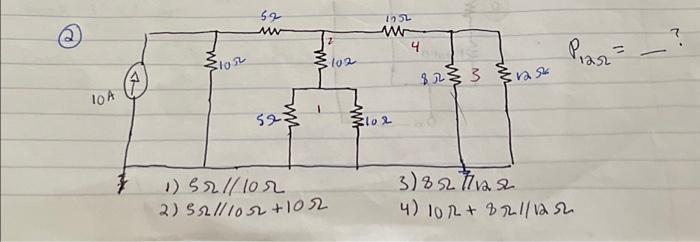 ② 5Ω 10Ω
10Ω 2 10Ω 4 P12Ω = __ ?
10A 8Ω 3 12Ω
5Ω 1 10Ω
1) 5Ω//10Ω 3) 8Ω//12Ω
2) 5Ω//10Ω+10Ω 4) 10Ω+8Ω//12Ω